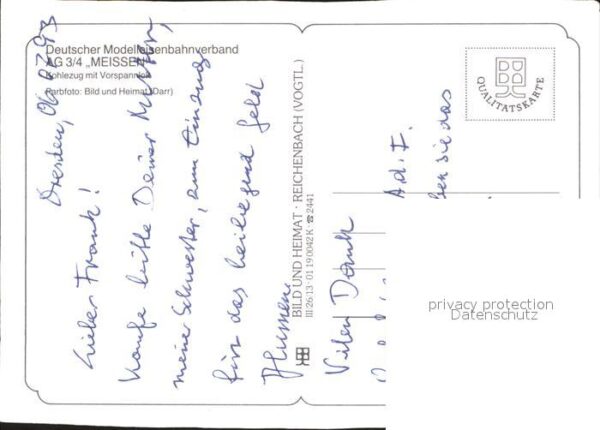 Deutscher Modelleisenbahnverband
AG 3/4 „MEISSEN"
Kohlezug mit Vorspannlok
Farbfoto: Bild und Heimat (Darr)
Dresden,
Lieber Frank!
Kaufe bitte Deiner Mutter,
meine Schwester, zum
für das beiliegend Geld
Blumen.
Vielen Dank
BILD UND HEIMAT · REICHENBACH (VOGTL.)
III-26-13 · 01 19 0042 K · ☎ 2441
QUALITÄTSKARTE
sie das
privacy protection
Datenschutz